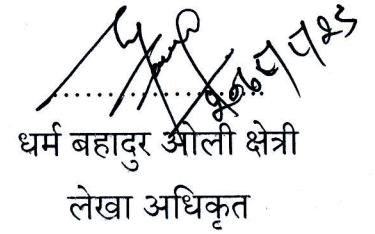 धर्म बहादुर ओली क्षेत्री
लेखा अधिकृत